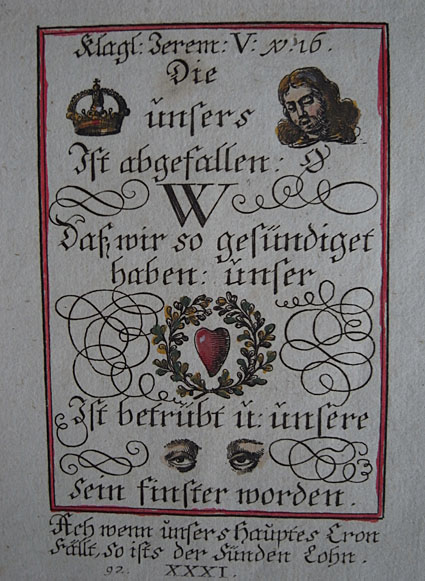 Klagl: Jerem: V: v: 16.
Die
ünsers
Ist abgefallen:
W
Daß wir so gesündiget
haben: ünser
Ist betrübt ü: ünsere
sein finster worden.
Ach wenn ünsers Haüptes Cron
Fällt, so ists der Sünden Lohn.
92. XXXI.